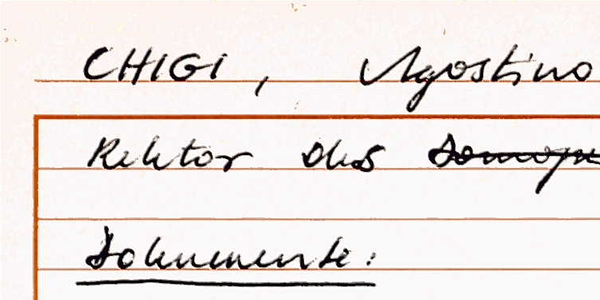 CHIGI, Agostino
Rektor des
Dokumente: